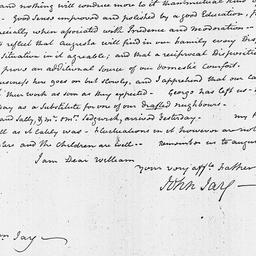 and nothing will conduce more to it than mutual kind
Good Sense improved and polished by a good Education,
especially when associated with Prudence and Moderation
reflect that Augusta will find in our Family every Dis
Situation in it agreeable; and that a reciprocal Disposition
prove an additional Source of our domestic Comfort.
Business here goes on but slowly, and I apprehend that our
their work as soon as they expected - George has left us -
day as a Substitute for one of our Drafted neighbours -
and Sally, & Mr. & Mrs. Sedgwick, arrived Yesterday. my
as it lately was - Fluctuations in it however are not
and the Children are well -- remember us to Augus
I am Dear William
Your very affte. Father
John Jay -
m Jay -